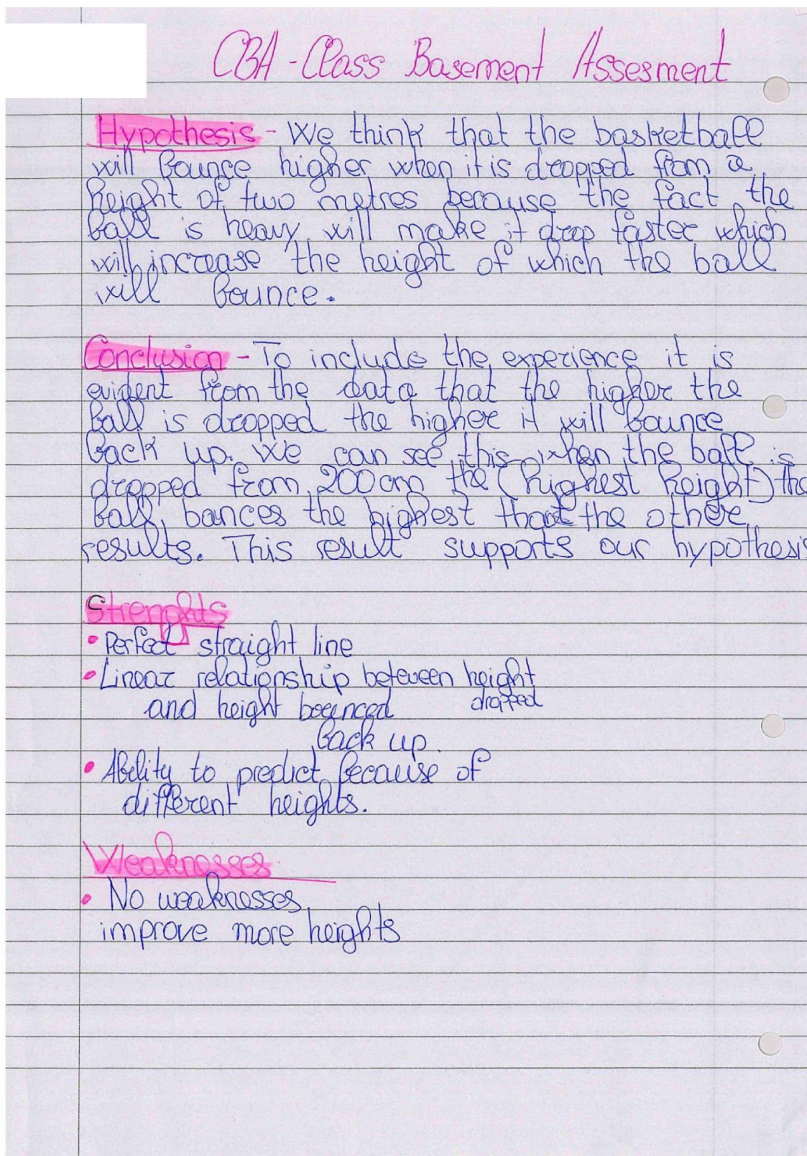 CBA - Class Basement Assesment
Hypothesis - We think that the basketball
will bounce higher when it is dropped from a
height of two metres because the fact the
ball is heavy will make it drop faster which
will increase the height of which the ball
will bounce.
Conclusion - To include the experience it is
evident from the data that the higher the
ball is dropped the higher it will bounce
back up. We can see this when the ball is
dropped from 200cm the (highest height) the
ball bances the highest than the other
results. This result supports our hypothesis
Strenghts
• Perfect straight line
• Linear relationship between height
dropped
and height bounced
back up.
• Ability to predict because of
different heights.
Weaknesses
• No weaknesses
improve more heights